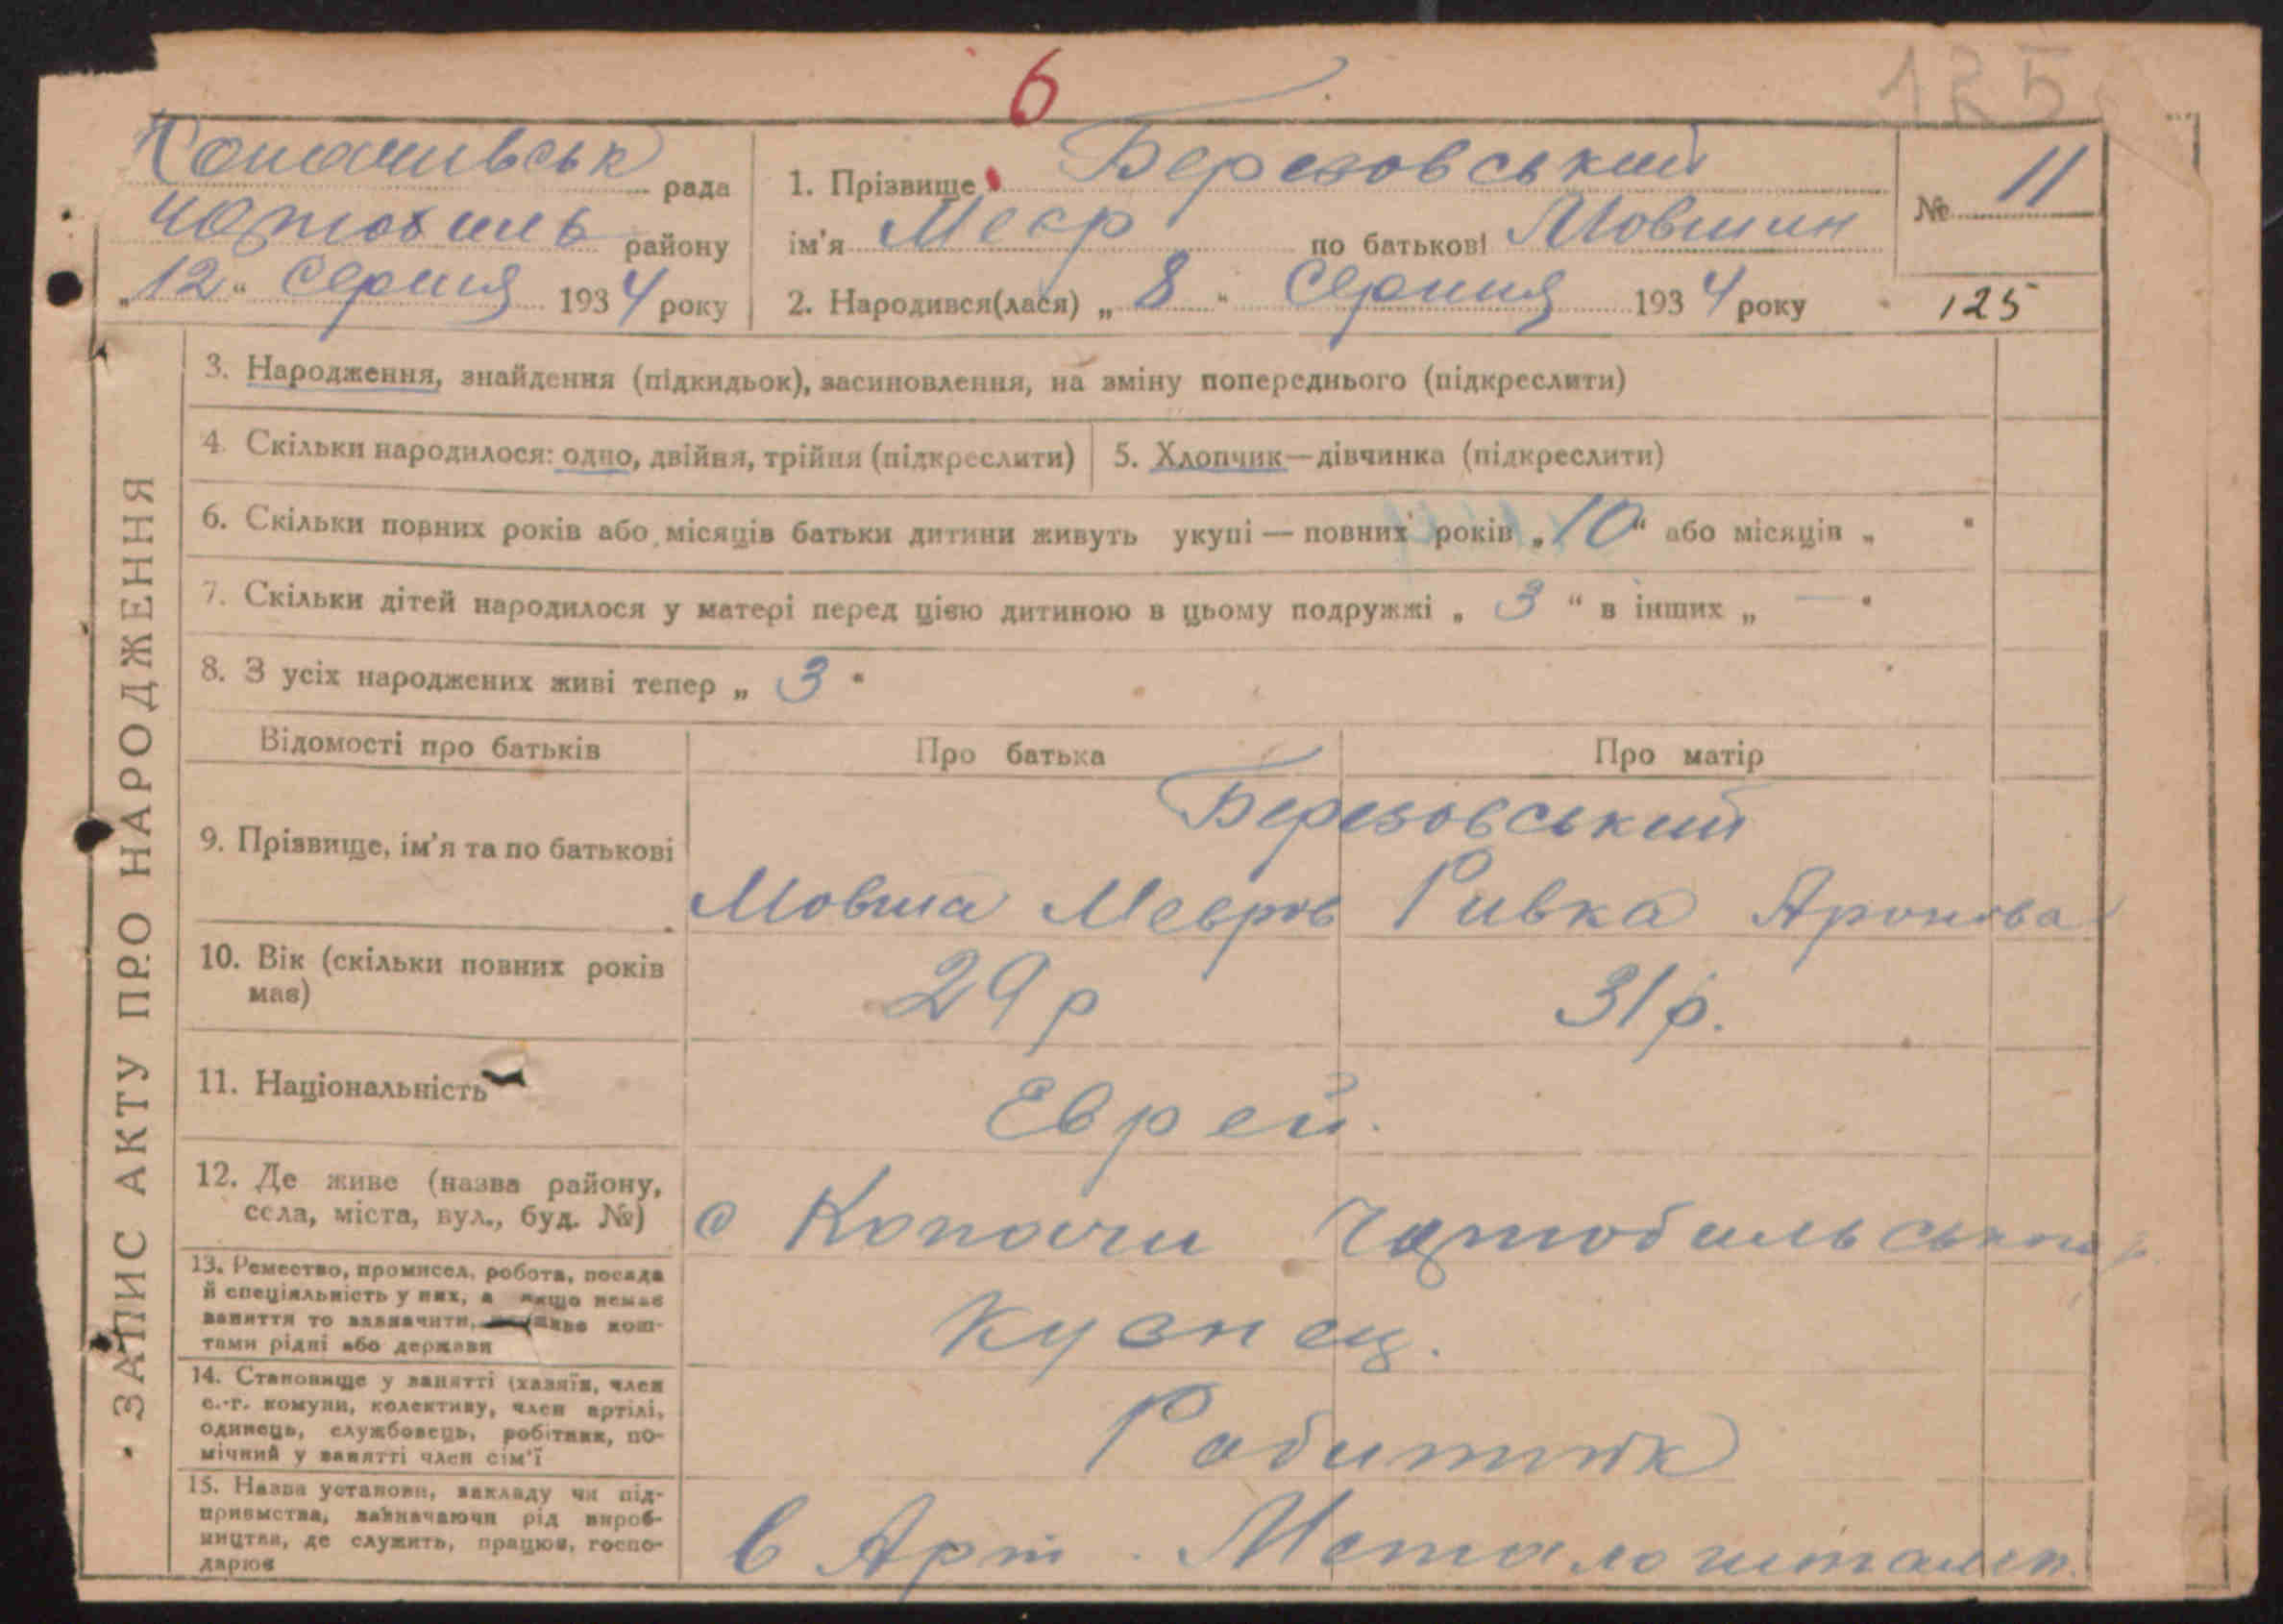 6
125
Копачивськ рада
Чорнобиль району
„12“ Серпня 1934 року
1. Прізвище Березовський
ім'я Меєр по батькові Мовшин
№ 11
2. Народився(лася) „8“ Серпня 1934 року
125
ЗАПИС АКТУ ПРО НАРОДЖЕННЯ
3. Народження, знайдення (підкидьок), засиновлення, на зміну попереднього (підкреслити)
4. Скільки народилося: одно, двійня, трійня (підкреслити)
5. Хлопчик—дівчинка (підкреслити)
6. Скільки повних років або місяців батьки дитини живуть укупі — повних років „10“ або місяців „ “
7. Скільки дітей народилося у матері перед цією дитиною в цьому подружжі „3“ в інших „—“
8. З усіх народжених живі тепер „3“
Відомості про батьків
Про батька
Про матір
9. Прізвище, ім'я та по батькові
Березовський
Мовша Меєров
Ривка Аронова
10. Вік (скільки повних років має)
29 р
31 р.
11. Національність
Еврей.
12. Де живе (назва району,
села, міста, вул., буд. №)
с Копачи Чорнобильського р.
13. Ремество, промисел, робота, посада
й спеціяльність у них, а якщо немає
заняття то зазначити, живе кош-
тами рідні або держави
Кузнец.
14. Становище у занятті (хазяїн, член
с.-г. комуни, колективу, член артілі,
одинець, службовець, робітник, по-
мічний у занятті член сім'ї
Робитник
15. Назва установи, закладу чи під-
приємства, зазначаючи рід вироб-
ництва, де служить, працює, госпо-
дарює
в Арт.